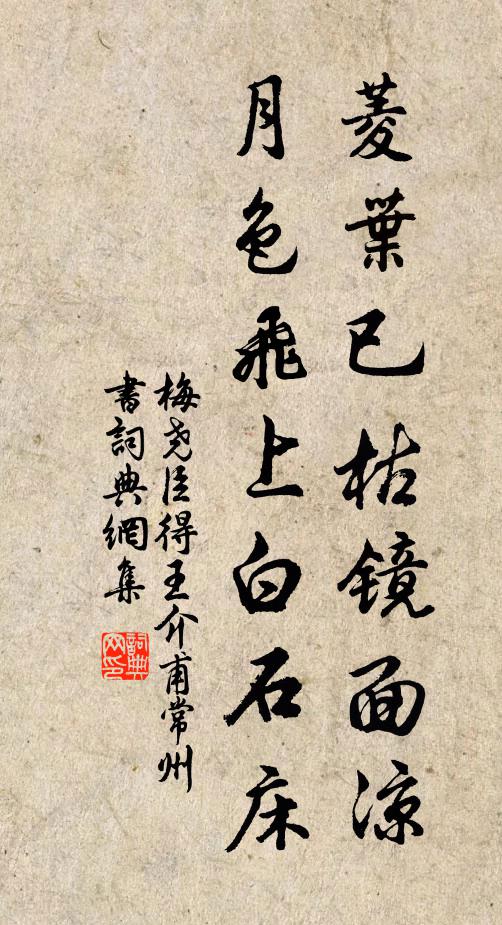 菱葉已枯镜面凉
月色飛上白石床
梅尧臣得王介甫常州
書詞典網集
詞典网印